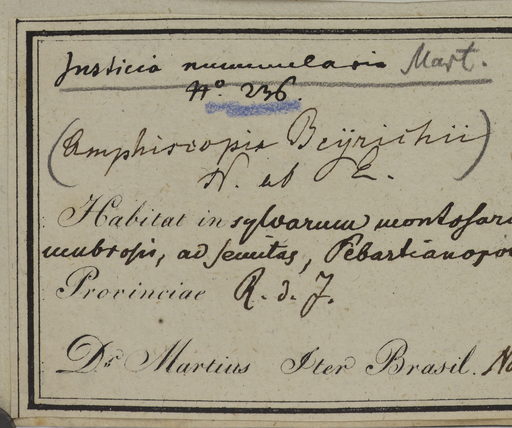 Justicia nummularia Mart.
No. 236
(Amphiscopia Beyrichii)
N. ab E.
Habitat in sylvarum montosar
umbrosis, ad semitas, Sebastianopo
Provinciae R. d. J.
Dr. Martius Iter Brasil. No